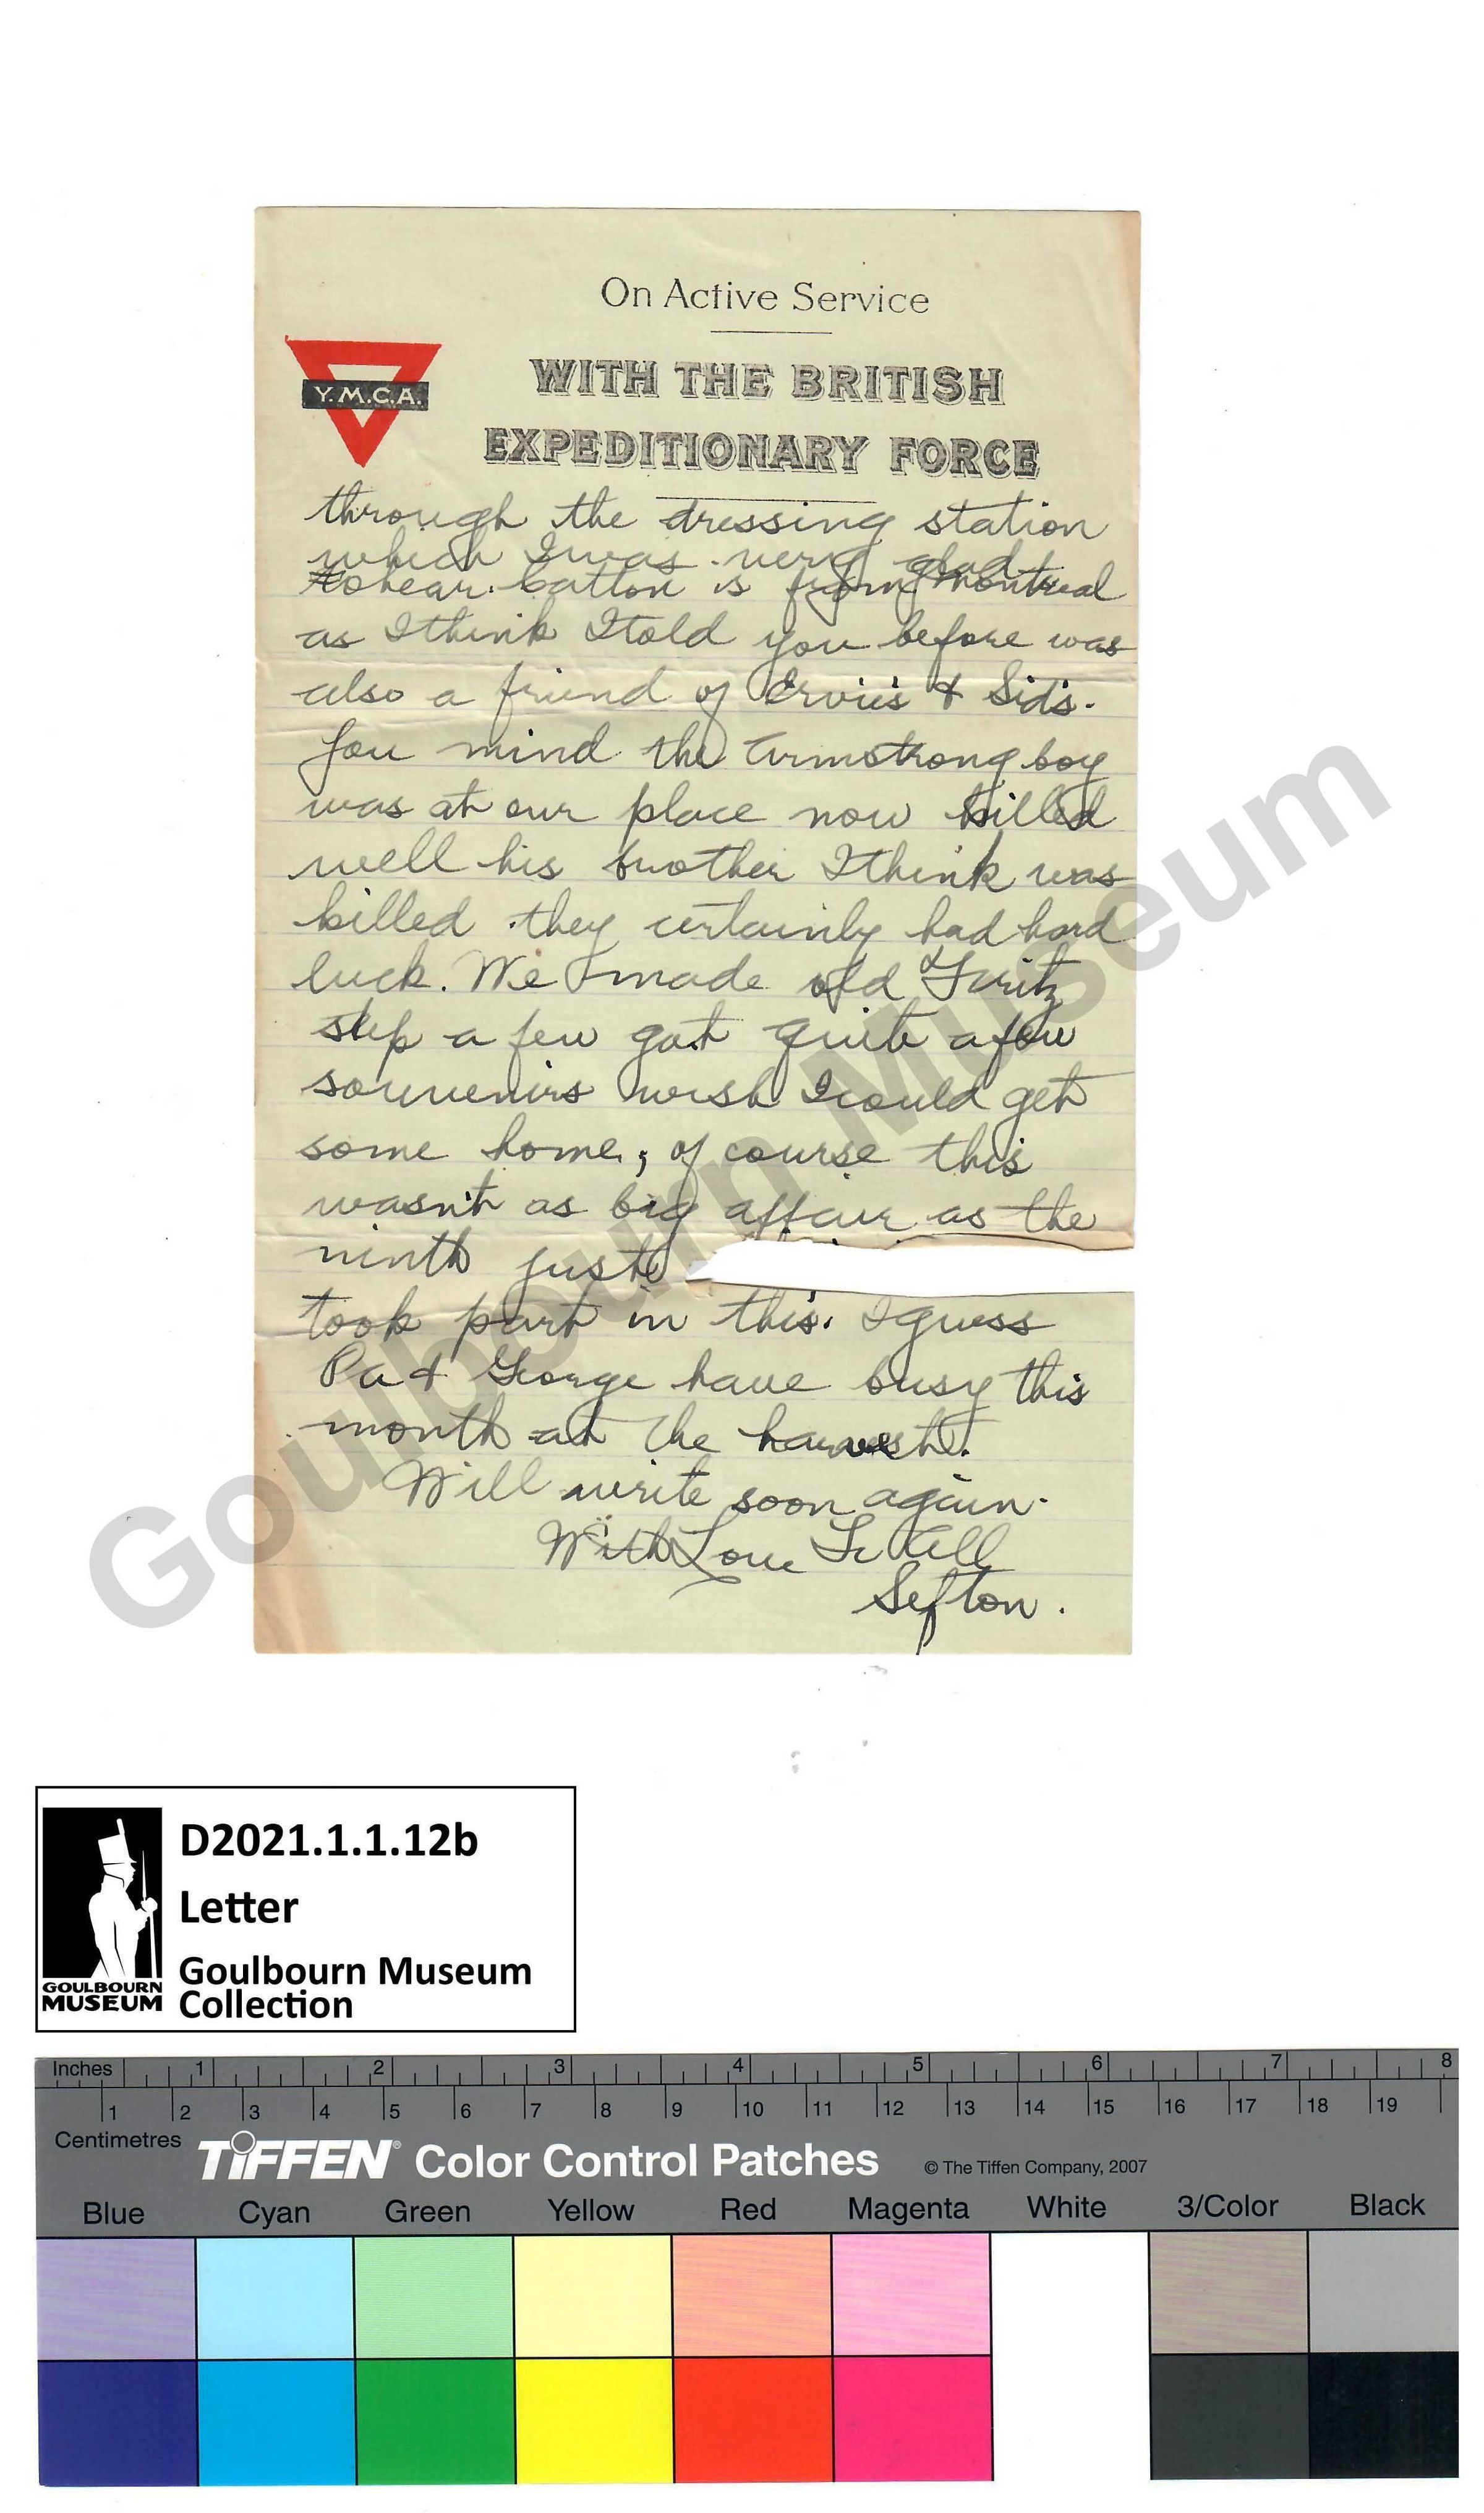 On Active Service
Y.M.C.A.
WITH THE BRITISH
EXPEDITIONARY FORCE
through the dressing station
which I was very glad
to hear. Catton is from Montreal
as I think I told you before was
also a friend of Ervie's & Sid's.
You mind the Armstrong boy
was at our place now killed
well his brother I think was
killed they certainly had hard
luck. We made old Fritz
step a few got quite a few
souvenirs wish I could get
some home, of course this
wasn't as big affair as the
ninth just
took part in this. I guess
Pa & George have busy this
month at the harvest.
Will write soon again.
With Love To All
Sefton.
Goulbourn Museum
D2021.1.1.12b
Letter
Goulbourn Museum
Collection
GOULBOURN
MUSEUM
Inches 1 2 3 4 5 6 7 8
1 2 3 4 5 6 7 8 9 10 11 12 13 14 15 16 17 18 19
Centimetres
TIFFEN® Color Control Patches © The Tiffen Company, 2007
Blue Cyan Green Yellow Red Magenta White 3/Color Black